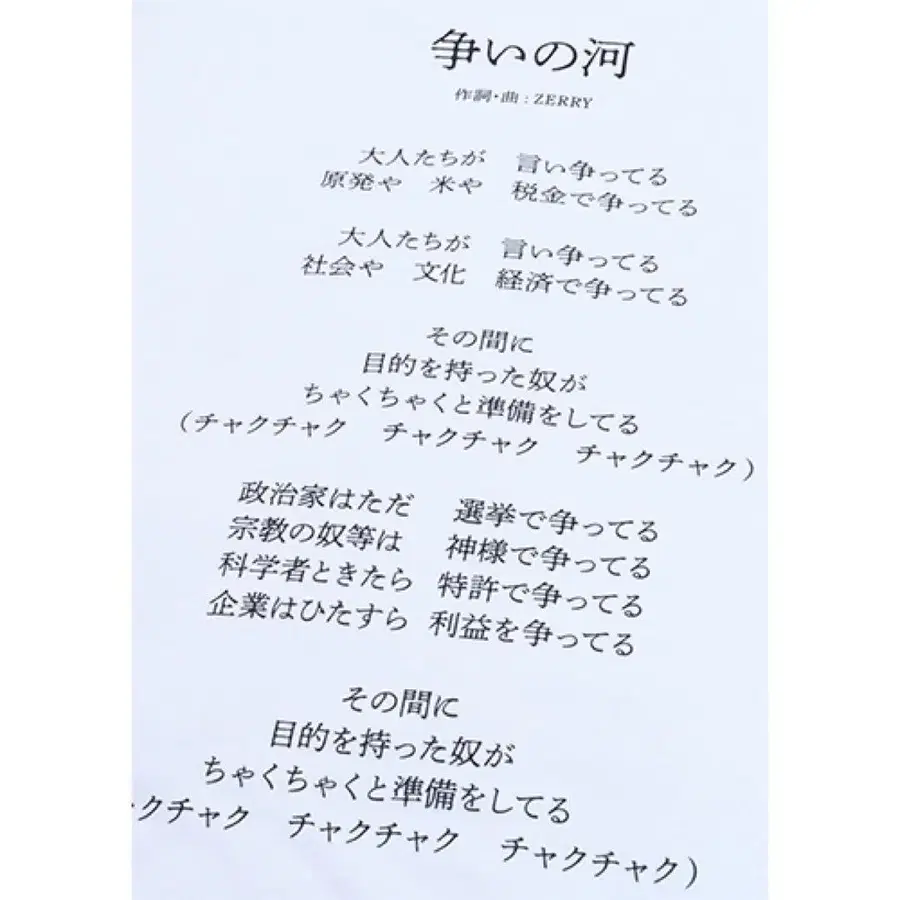 争いの河
作詞・曲：ZERRY
大人たちが　言い争ってる
原発や　米や　税金で争ってる
大人たちが　言い争ってる
社会や　文化　経済で争ってる
その間に
目的を持った奴が
ちゃくちゃくと準備をしてる
（チャクチャク　チャクチャク　チャクチャク）
政治家はただ　選挙で争ってる
宗教の奴等は　神様で争ってる
科学者ときたら　特許で争ってる
企業はひたすら　利益を争ってる
その間に
目的を持った奴が
ちゃくちゃくと準備をしてる
クチャク　チャクチャク　チャクチャク）